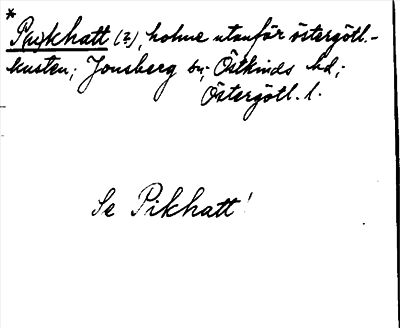 *
P(u)khatt (?), holme utanför östergötl.-
kusten; Jonsberg sn; Östkinds hd;
Östergötl. l.
Se Pikhatt!